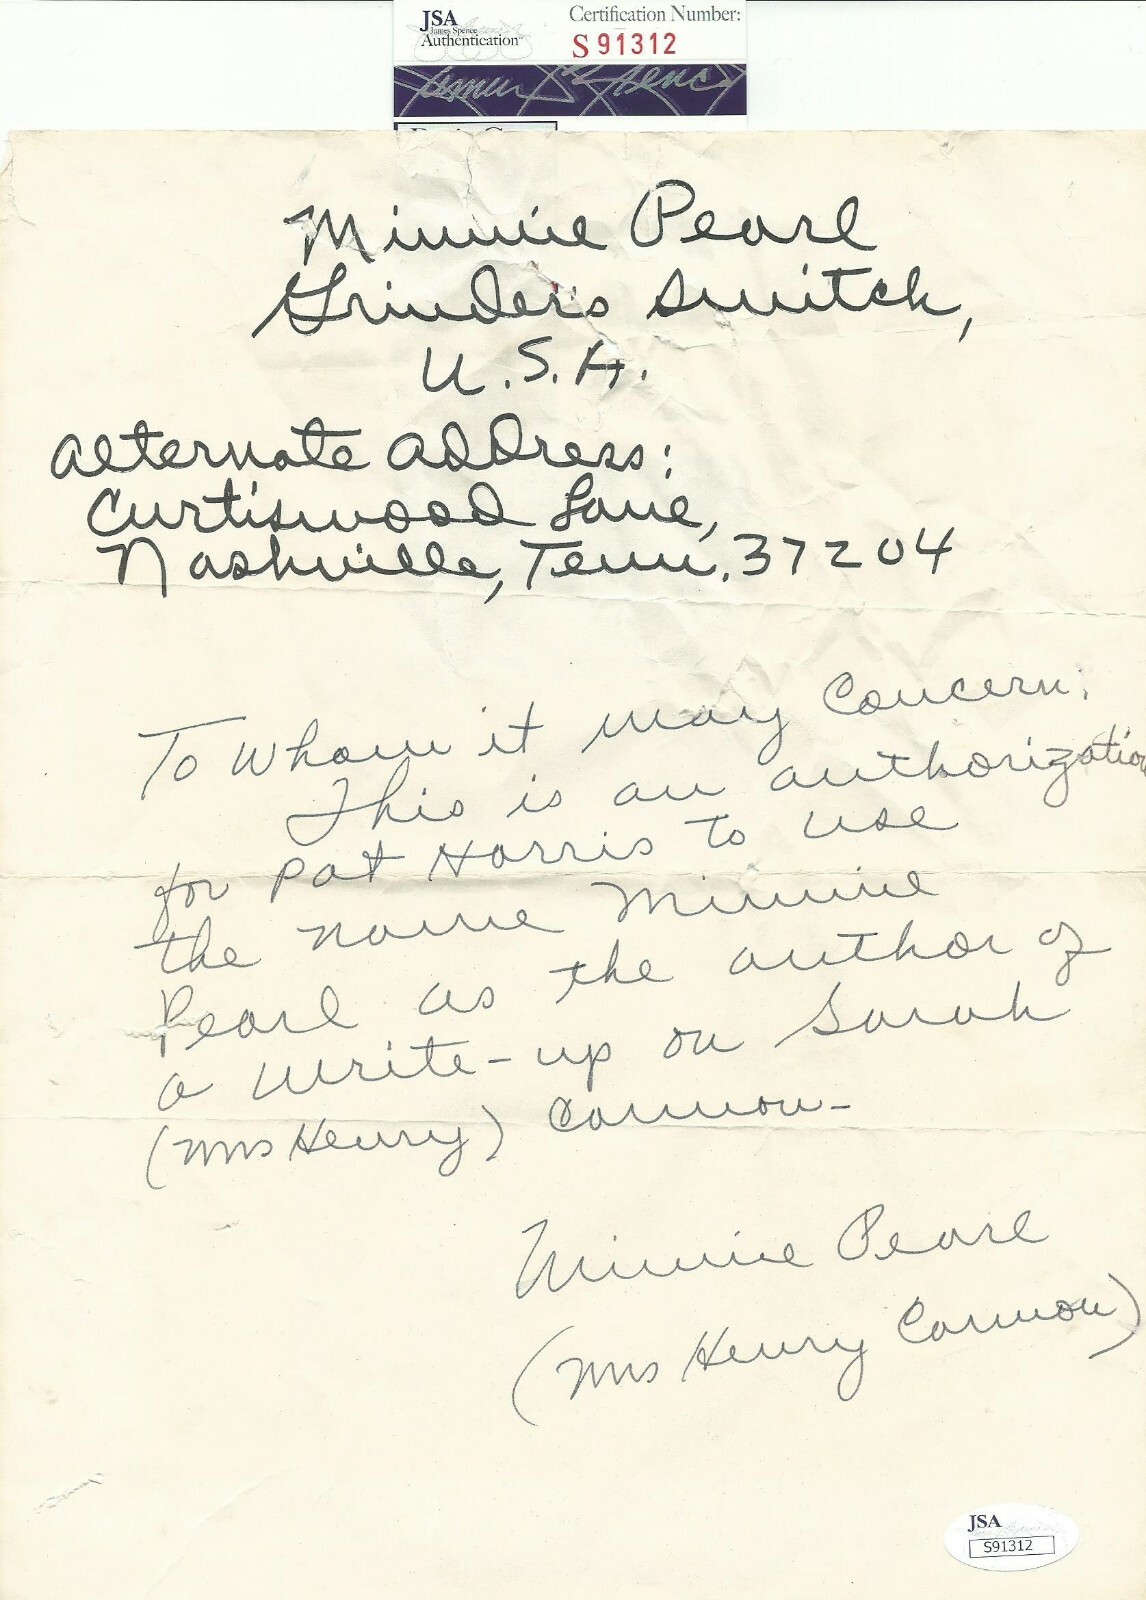 JSA
James Spence
Authentication
Certification Number:
S 91312
Minnie Pearl
Grinder's Switch,
U.S.A.
Alternate address:
Curtiswood Lane,
Nashville, Tenn. 37204
To Whom it may Concern:
This is an authorization
for Pat Harris to use
the name Minnie
Pearl as the author of
a write-up on Sarah
(Mrs Henry) Cannon-
Minnie Pearl
(Mrs Henry Cannon)
JSA
S91312